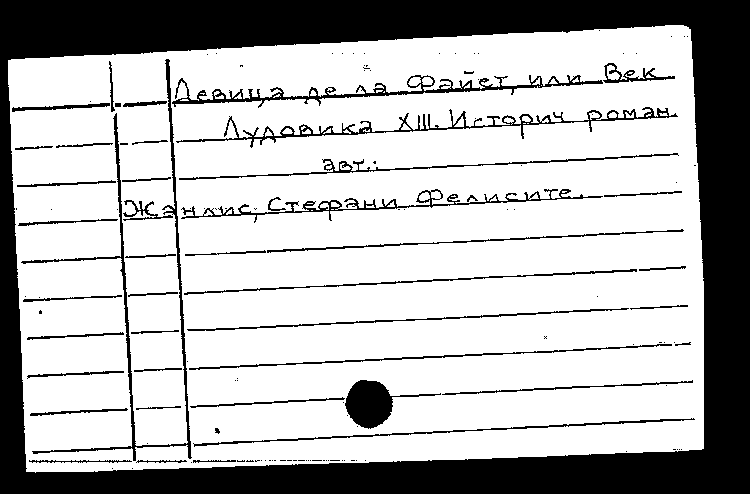 Девица де ла Файет, или Век
Лудовика XIII. Историч роман.
авт.:
Жанлис, Стефани Фелисите.